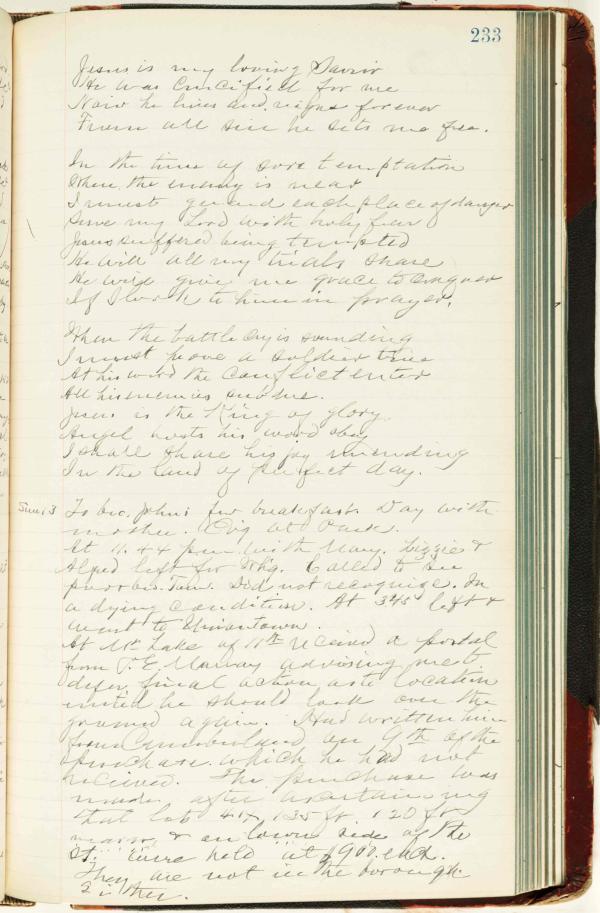 233
Jesus is my loving Savior
He was crucified for me
Now he lives and reigns forever
From all sin he sets me free.
In the time of sore temptation
When the enemy is near
I must guard each place of danger
Serve my Lord with holy fear
Jesus suffered being tempted
He will all my trials share
He will give me grace to conquer
If I look to him in prayer.
When the battle cry is sounding
I must prove a soldier true
At his word the conflict enter
All his enemies subdue.
Jesus is the King of glory
Angel hosts his word obey
I shall share his joy unending
In the land of perfect day.
Sun 13 To bro. John's for breakfast. Day with
mother. Eve at Park.
At 11. & 4 p.m. with Mary. Lizzie &
left for Called to see
poor bro. Did not recognize. In
a dying condition. At 3 45 left &
went to Uniontown.
At Mt. Lake of 11th received a postal
from T. E. Murray advising me to
defer final action as to location
until he should look over the
ground again. I had written him
from Cumberland on 9th of the
purchase which he had not
received. The purchase was
made after ascertaining
that 135 ft. 120 ft
& on town side of the
St. were held at $900. each.
They are not in the borough
either.